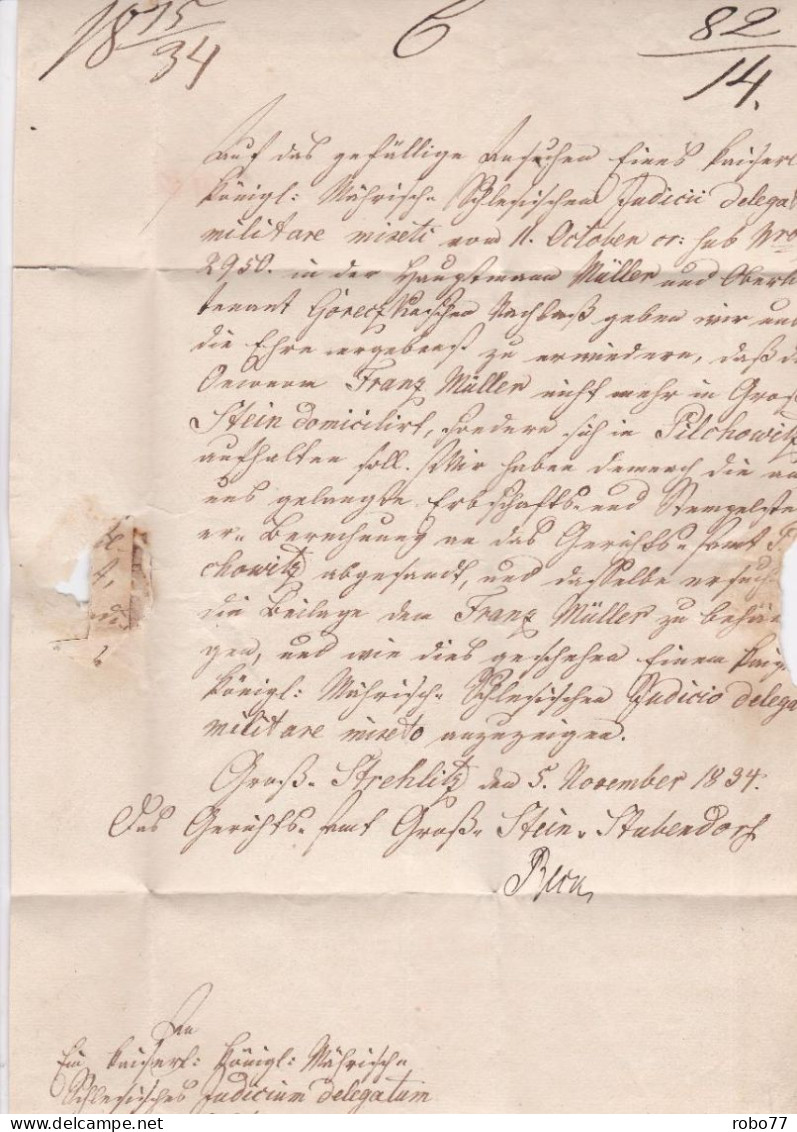 1875/34 C 82/14.
Auf das gefällige Ansuchen Eines Kaiserl
Königl: Mährisch Schlesischen Judicii delega
militare mixti vom 11. October cr: sub Nro
2950. in der Hauptmann Müller und Oberli
tenant Goreczkaschen Nachlaß geben wir uns
die Ehre ergebenst zu erwiedern, daß d
Oeconom Franz Müller nicht mehr in Groß
Stein domicilirt, sondern sich in Pilchowitz
aufhalten soll. Wir haben demnach die an
uns gelangte Erbschafts- und Stempelste
er- Berechnung an das Gerichts-Amt P
chowitz abgesandt, und dasselbe ersuch
die Beilage dem Franz Müller zu behän
gen, und wie dies geschehen Einem Kai
Königl: Mährisch Schlesischen Judicio delega
militare mixto anzuzeigen.
Groß-Strehlitz den 5. November 1834.
Das Gerichts-Amt Groß-Stein-Stubendorf
An
Ein Kaiserl: Königl: Mährisch
Schlesisches Judicium delegatum
robo77